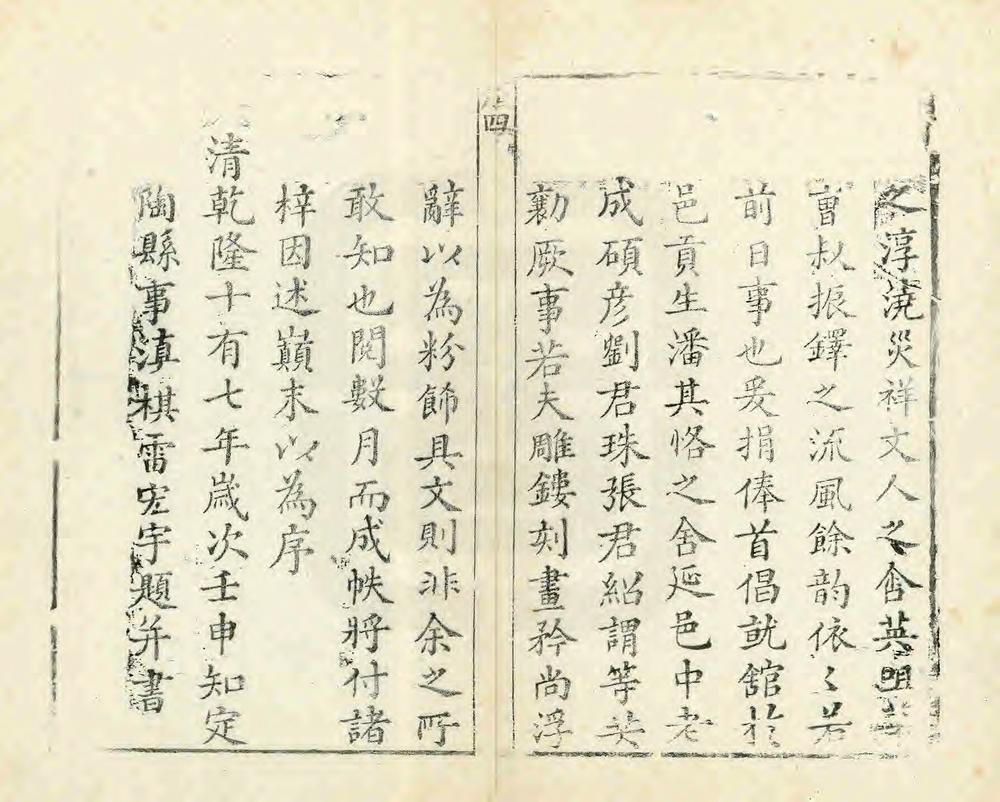 之淳澆災祥文人之含英咀華
曹叔振鐸之流風餘韵依〻若
前日事也爰捐俸首倡就舘於
邑貢生潘其恪之舍延邑中老
成碩彥劉君珠張君紹謂等共
勷厥事若夫雕鏤刻畫矜尚浮
四
辭以為粉飾具文則非余之所
敢知也閱數月而成帙將付諸
梓因述巔末以為序
清乾隆十有七年歲次壬申知定
陶縣事滇棋雷宏宇題并書